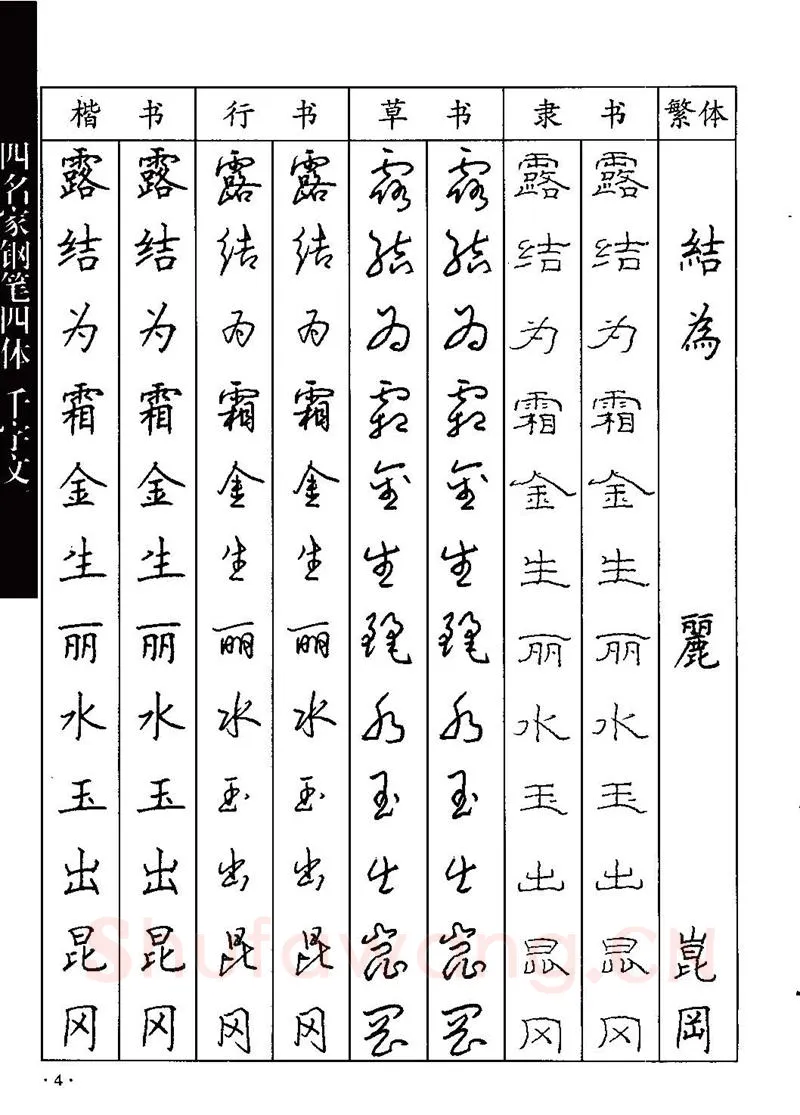 四名家钢笔四体 千字文
楷书 行书 草书 隶书 繁体
露 露 露 露 露 露 露 露
结 结 结 结 结 结 结 结 結
为 为 为 为 为 为 为 为 為
霜 霜 霜 霜 霜 霜 霜 霜
金 金 金 金 金 金 金 金
生 生 生 生 生 生 生 生
丽 丽 丽 丽 麗 麗 丽 丽 麗
水 水 水 水 水 水 水 水
玉 玉 玉 玉 玉 玉 玉 玉
出 出 出 出 出 出 出 出
昆 昆 昆 昆 崑 崑 昆 昆 崑
冈 冈 冈 冈 岡 岡 冈 冈 岡
Shufawang.CN
·4·